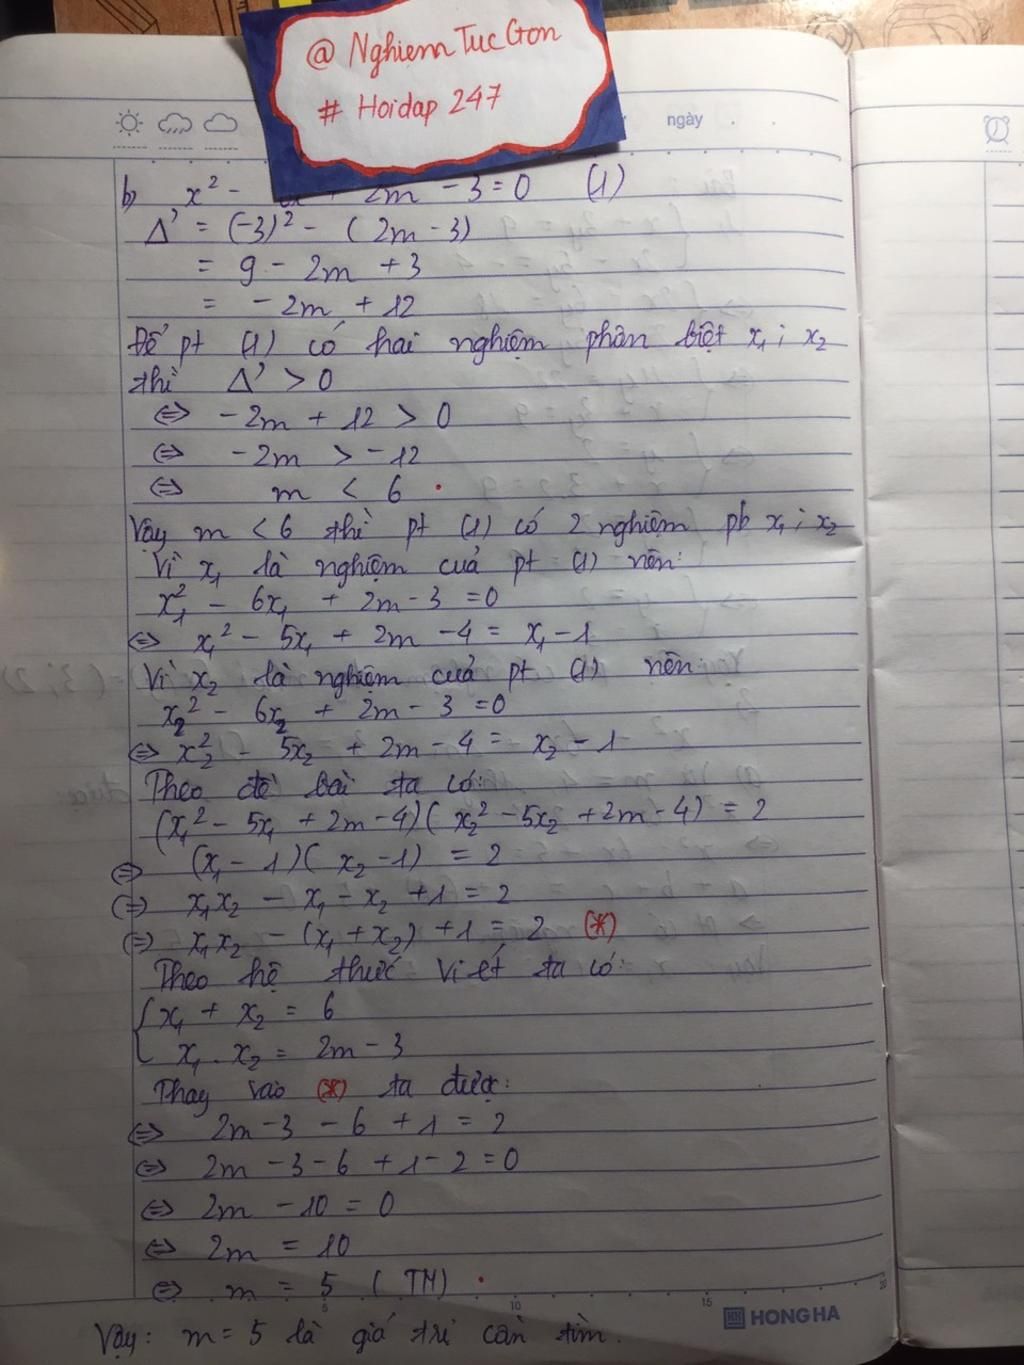 @ NghiemTucGon
# Hoidap 247
ngày
b) x² - 6x + 2m - 3 = 0 (1)
Δ' = (-3)² - (2m - 3)
= 9 - 2m + 3
= - 2m + 12
Để pt (1) có hai nghiệm phân biệt x₁ ; x₂
thì Δ' > 0
⇔ - 2m + 12 > 0
⇔ - 2m > - 12
⇔ m < 6
Vậy m < 6 thì pt (1) có 2 nghiệm pb x₁ ; x₂
Vì x₁ là nghiệm cuả pt (1) nên:
x₁² - 6x₁ + 2m - 3 = 0
⇔ x₁² - 5x₁ + 2m - 4 = x₁ - 1
Vì x₂ là nghiệm cuả pt (1) nên:
x₂² - 6x₂ + 2m - 3 = 0
⇔ x₂² - 5x₂ + 2m - 4 = x₂ - 1
Theo đề bài ta có:
(x₁² - 5x₁ + 2m - 4)( x₂² - 5x₂ + 2m - 4) = 2
⇔ (x₁ - 1)( x₂ - 1) = 2
⇔ x₁x₂ - x₁ - x₂ + 1 = 2
⇔ x₁x₂ - (x₁ + x₂) + 1 = 2 (*)
Theo hệ thức Vi ét ta có:
{ x₁ + x₂ = 6
x₁ . x₂ = 2m - 3
Thay vào (*) ta được:
⇔ 2m - 3 - 6 + 1 = 2
⇔ 2m - 3 - 6 + 1 - 2 = 0
⇔ 2m - 10 = 0
⇔ 2m = 10
⇔ m = 5 ( TM)
5 10 15 20
HONG HA
Vậy: m = 5 là giá trị cần tìm.